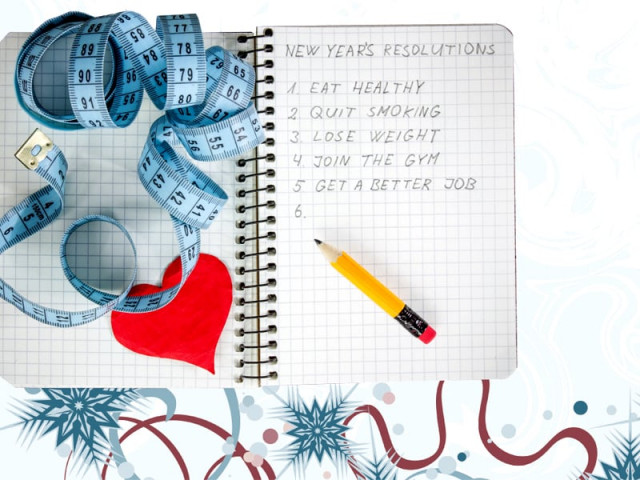 NEW YEAR'S RESOLUTIONS
1. EAT HEALTHY
2 QUIT SMOKING
3. LOSE WEIGHT
4. JOIN THE GYM
5 GET A BETTER JOB
6.
88
89
90
91
85
84
78
79
80
65
66
55
54
44
43
42
41
4
5
6